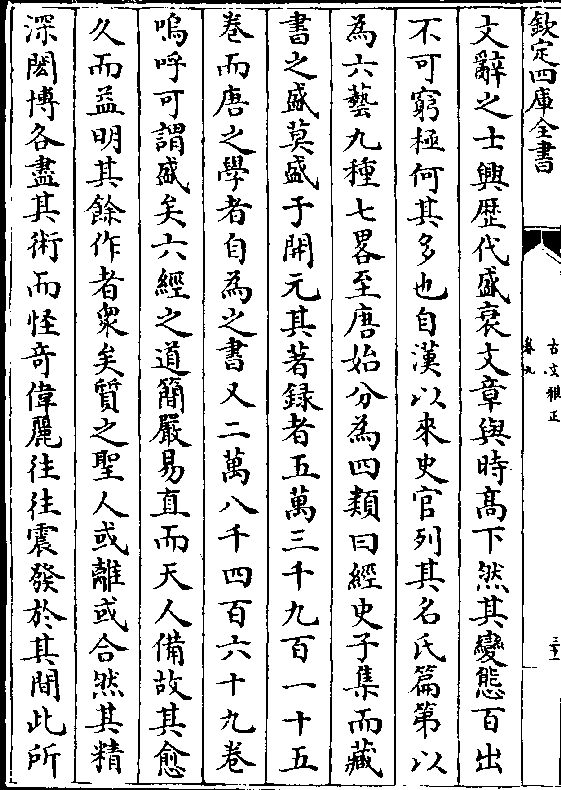 欽定四庫全書
古文雅正
卷九
三十一
文辭之士興歴代盛衰文章與時髙下然其變態百出
不可窮極何其多也自漢以來史官列其名氏篇第以
為六藝九種七畧至唐始分為四類曰經史子集而藏
書之盛莫盛于開元其著録者五萬三千九百一十五
卷而唐之學者自為之書又二萬八千四百六十九卷
嗚呼可謂盛矣六經之道簡嚴易直而天人備故其愈
久而益明其餘作者衆矣質之聖人或離或合然其精
深閎博各盡其術而怪奇偉麗往往震發於其間此所